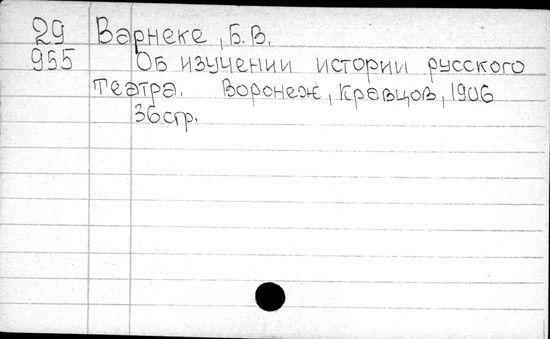 29 Варнеке, Б.В.
955 Об изучении истории русского
театра. Воронеж, Кравцов, 1906
36стр.